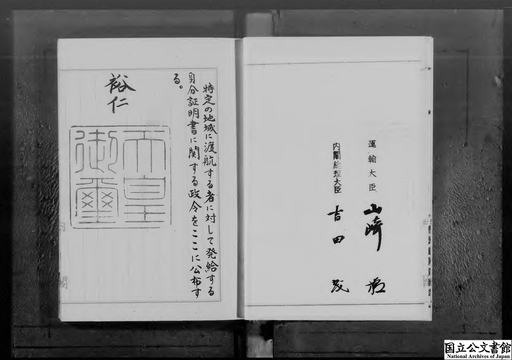 運輸大臣 山﨑 猛
内閣総理大臣 吉田 茂
特定の地域に渡航する者に対して発給する
身分証明書に関する政令をここに公布す
る。
裕仁
天皇
御璽
国立公文書館
National Archives of Japan